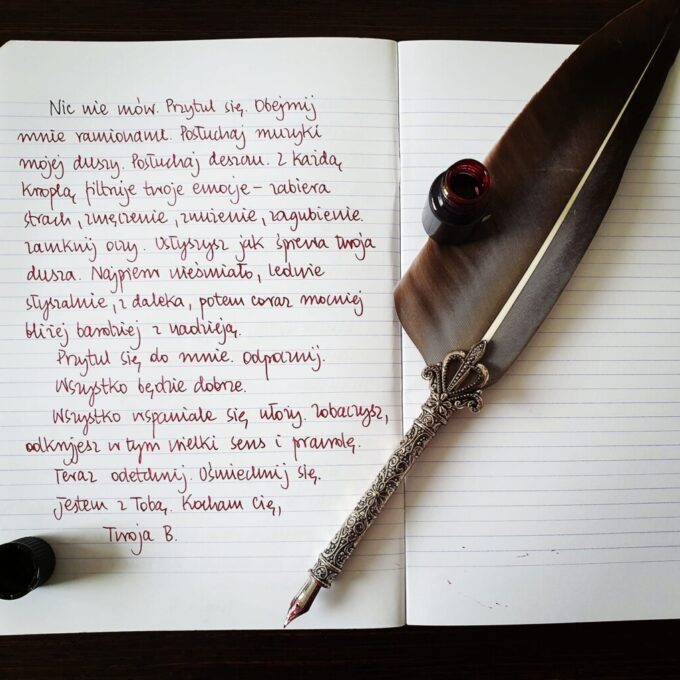 Nic nie mów. Przytul się. Obejmij
mnie ramionami. Posłuchaj muzyki
mojej duszy. Posłuchaj deszczu. Z każdą
kroplą filtruje twoje emocje – zabiera
strach, zmęczenie, zagubienie.
Zamknij oczy. Usłyszysz jak śpiewa twoja
dusza. Najpierw nieśmiało, ledwie
słyszalnie, z daleka, potem coraz mocniej
bliżej bardziej z nadzieją.
Przytul się do mnie. Odpocznij.
Wszystko będzie dobrze.
Wszystko wspaniale się ułoży. Zobaczysz,
odkryjesz w tym wielki sens i prawdę.
Teraz odetchnij. Uśmiechnij się.
Jestem z Tobą. Kocham Cię,
Twoja B.